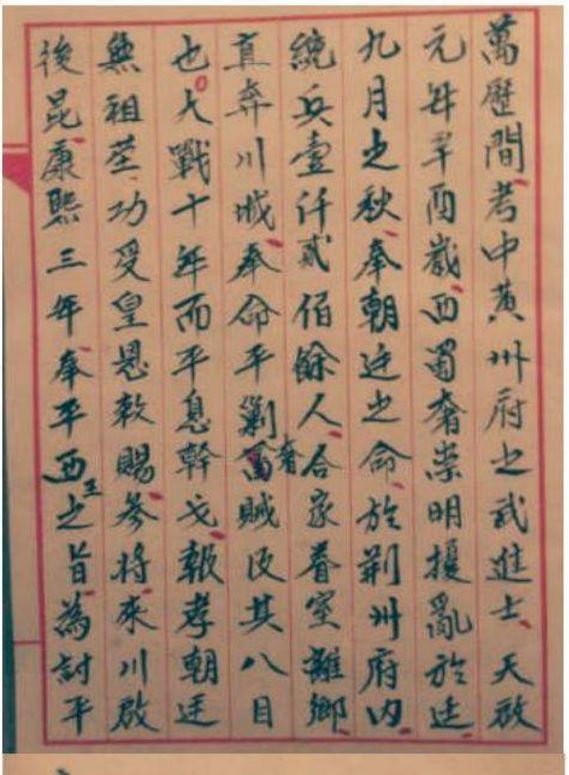 萬歷間考中黃州府之武進士天啟
元年辛酉歲西蜀奢崇明擾亂於廷
九月之秋奉朝廷之命於荆州府內
統兵壹仟貳佰餘人合家眷室離鄉
直奔川城奉命平剿奢賊及其八目
也大戰十年而平息幹戈報孝朝廷
無祖茔功受皇恩敕賜參將來川啟
後昆康熙三年奉平西王之旨為討平